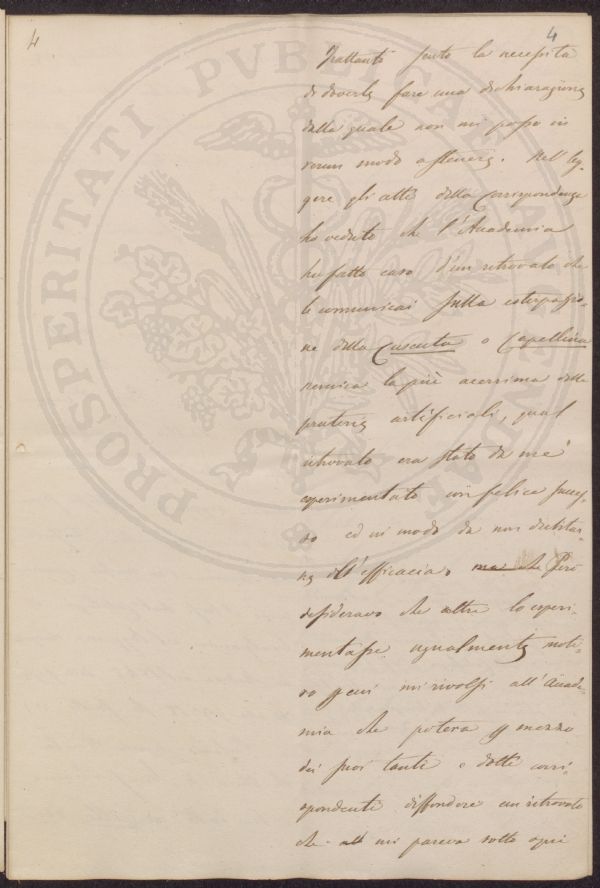 4
4
Frattanto sento la necessità
di doverla fare una dichiarazione
dalla quale non mi posso in
verun modo astenere. Nel leg-
gere gli atti della Corrispondenza
ho veduto che l'Accademia
ha fatto caso d'un ritrovato che
le comunicai sulla esterpazio-
ne della Cuscuta o Capellina
nemica la più acerrima delle
praterie artificiali, qual
ritrovato era stato da me
esperimentato con felice succes-
so ed in modo da non dubitar-
ne dell'efficacia, ma che Però
desideravo che altri lo esperi-
mentasse ugualmente moti-
vo per cui mi rivolsi all'Accade-
mia che poteva per mezzo
dei suoi tanti e dotti corri-
spondenti diffondere un ritrovato
che mi pareva sotto ogni
PROSPERITATI PVBLICAE AVGENDAE